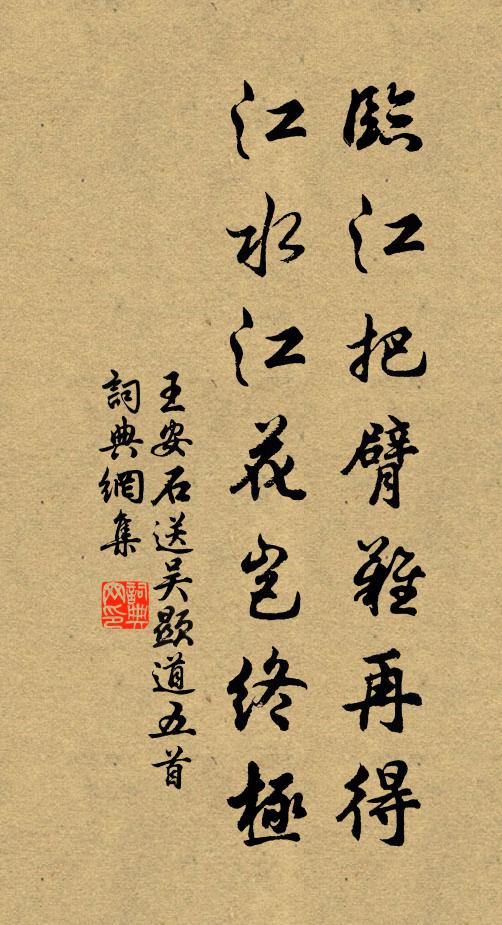 臨江把臂難再得
江水江花豈終極
王安石送吴顯道五首
詞典網集
詞典網印